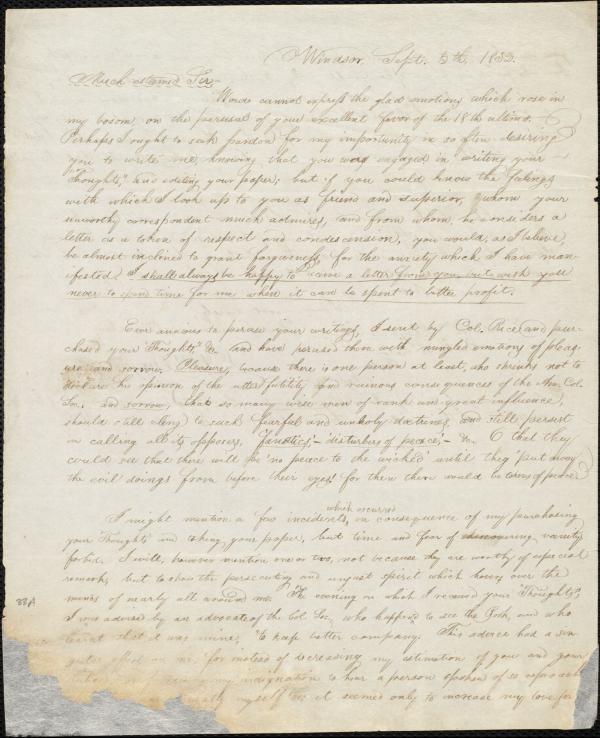 Windsor, Sept. 5th, 1832.
Much esteemed Sir—
Words cannot express the glad emotions which rose in
my bosom, on the perusal of your excellent favor of the 18th ultimo.
Perhaps I ought to seek pardon for my importunity in so often desiring
you to write me, knowing that you was engaged in writing your
"Thoughts," and editing your paper; but if you could know the feelings
with which I look up to you as friend and superior, whom your
unworthy correspondent much admires, and from whom, he considers a
letter as a token of respect and condescension, you would, as I believe,
be almost inclined to grant forgiveness, for the anxiety which I have man-
ifested. I shall always be happy to receive a letter from you, but wish you
never to spend time for me when it can be spent to better profit.
Ever anxious to peruse your writings, I sent by Col. Price, and pur-
chased your "Thoughts," &c and have perused them with mingled emotions of pleas-
ure and sorrow. Pleasure, because there is one person at least, who shrinks not to
declare his opinion of the utter futility and ruinous consequences of the Am. Col.
Soc. and sorrow, that so many wise men of rank and great influence,
should still cling to such fearful and unholy doctrines, and still persist
in calling all its opposers, Fanatics,—disturbers of peace,—&c. O that they
could see that there will be 'no peace to the wicked' until they 'put away
the evil doings from before their eyes'! for then there would be terms of peace
I might mention a few incidents, which occurred in consequence of my purchasing
your Thoughts and taking your paper, but time and fear of discovering vanity
forbid. I will, however mention one or two, not because they are worthy of especial
remark, but to show the persecuting and unjust spirit which hovers over the
minds of nearly all around me. The evening on which I received your "Thoughts,"
I was advised by an advocate of the Col. Soc. who happened to see the Book, and who
learnt that it was mine, "to keep better company." This advice had a sin-
gular effect on me, for instead of decreasing my estimation of you and your
my indignation to hear a person spoken of so reproach
myself it seemed only to increase my love for
88A